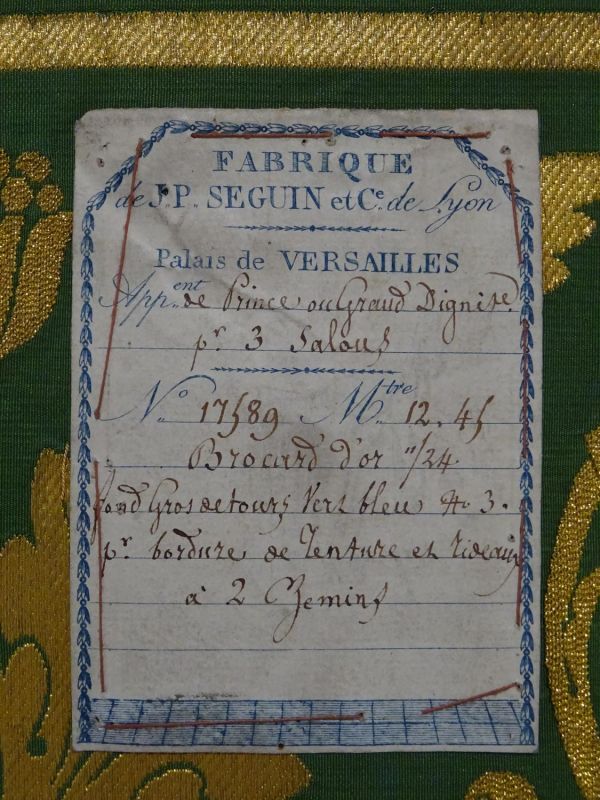 FABRIQUE
de J.P. SEGUIN et Ce. de Lyon
Palais de VERSAILLES
App.ent de Prince ou Grand Dignite.
pr. 3 Salons
No. 17589 Mtre. 12.45
Brocard d'or n/24
fond Gros de tours Vert bleu No 3.
pr. bordure de Tenture et rideaux
à 2 Chemins